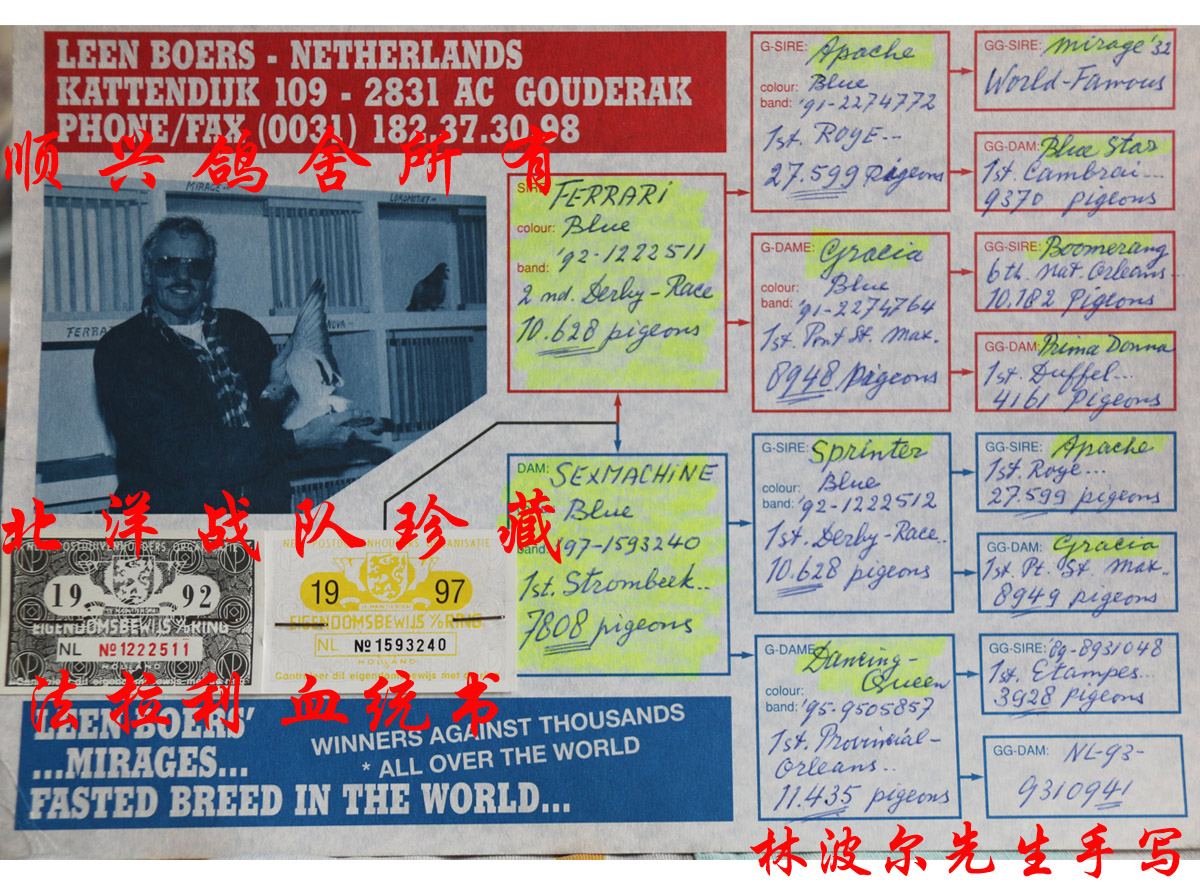 LEEN BOERS - NETHERLANDS
KATTENDIJK 109 - 2831 AC GOUDERAK
PHONE/FAX (0031) 182.37.30.98
顺兴鸽舍所有
MIRAGE
FERRA
SIRE:
FERRARi
colour: Blue
band: '92-1222511
2nd. Derby-Race
10.628 pigeons
DAM: SEXMACHiNE
Blue
band: '97-1593240
1st. Strombeek..
7808 pigeons
G-SIRE: Apache
colour: Blue
band: '91-2274772
1st. ROYE...
27.599 Pigeons
G-DAME: Gracia
colour: Blue
band: '91-2274764
1st. Pont St. Max.
8948 Pigeons
G-SIRE: Sprinter
colour: Blue
band: '92-1222512
1st. Derby-Race..
10.628 pigeons
G-DAME: Dancing-
Queen
colour:
band: '95-9505857
1st. Provincial-
Orleans..
11.435 pigeons
GG-SIRE: Mirage '32
World-Famous
GG-DAM: Blue Star
1st. Cambrai...
9370 pigeons
GG-SIRE: Boomerang
6th. Nat. Orleans...
10.182 Pigeons
GG-DAM: Prima Donna
1st. Duffel...
4161 Pigeons
GG-SIRE: Apache
1st. Roye...
27.599 pigeons
GG-DAM: Gracia
1st. Pt. St. Max..
8949 pigeons
GG-SIRE: '89-8931048
1st. Etampes...
3928 Pigeons
GG-DAM: NL-93-
9310941
北洋战队珍藏
1992
EIGENDOMSBEWIJS V/RING
NL Nº1222511
HOLLAND
1997
EIGENDOMSBEWIJS V/RING
NL Nº1593240
HOLLAND
法拉利血统书
LEEN BOERS'
...MIRAGES...
FASTED BREED IN THE WORLD...
WINNERS AGAINST THOUSANDS
* ALL OVER THE WORLD
林波尔先生手写